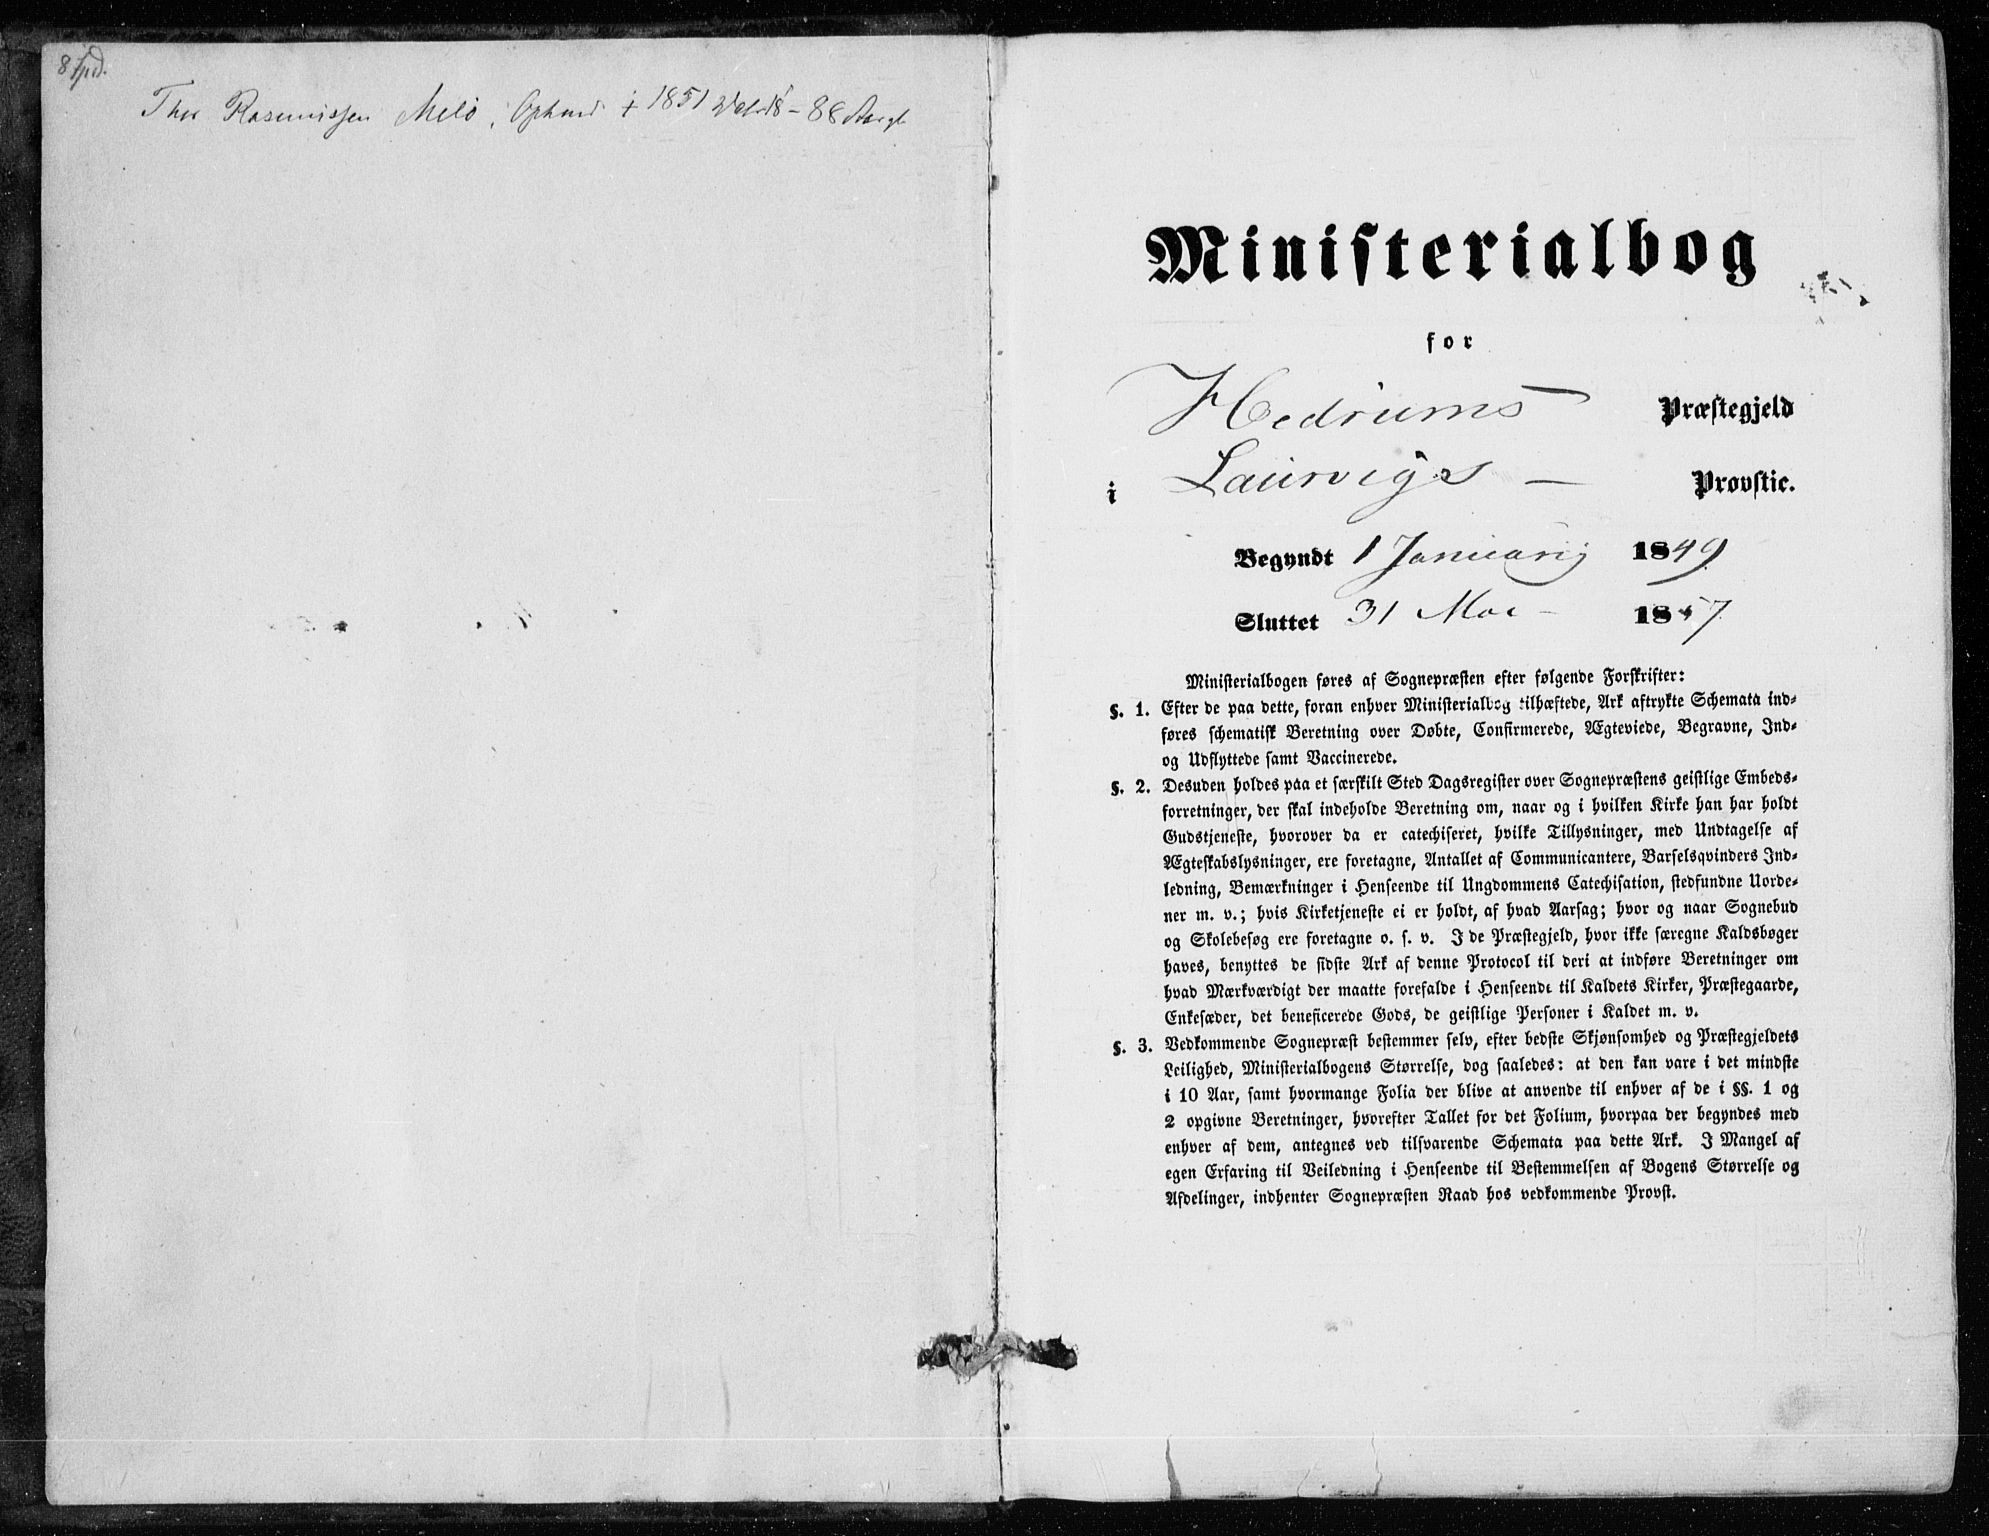 8 spd.
Thor Rasmussen Melø, † 1851 88 Aar gl
Ministerialbog
for
Hedrums Præstegjeld
i Laurvigs – Provstie.
Begyndt 1 Januarij 1849
Sluttet 31 Mai – 1857
Ministerialbogen føres af Sognepræsten efter følgende Forskrifter:
§. 1. Efter de paa dette, foran enhver Ministerialbog tilhæftede, Ark aftrykte Schemata ind-
føres schematisk Beretning over Døbte, Confirmerede, Ægteviede, Begravne, Ind-
og Udflyttede samt Vaccinerede.
§. 2. Desuden holdes paa et særskilt Sted Dagsregister over Sognepræstens geistlige Embeds-
forretninger, der skal indeholde Beretning om, naar og i hvilken Kirke han har holdt
Gudstjeneste, hvorover da er catechiseret, hvilke Tillysninger, med Undtagelse af
Ægteskabslysninger, ere foretagne, Antallet af Communicantere, Barselsqvinders Ind-
ledning, Bemærkninger i Henseende til Ungdommens Catechisation, stedfundne Uorde-
ner m. v.; hvis Kirketjeneste ei er holdt, af hvad Aarsag; hvor og naar Sognebud
og Skolebesøg ere foretagne o. s. v. I de Præstegjeld, hvor ikke særegne Kaldsbøger
haves, benyttes de sidste Ark af denne Protocol til deri at indføre Beretninger om
hvad Mærkværdigt der maatte forefalde i Henseende til Kaldets Kirker, Præstegaarde,
Enkesæder, det beneficerede Gods, de geistlige Personer i Kaldet m. v.
§. 3. Vedkommende Sognepræst bestemmer selv, efter bedste Skjønsomhed og Præstegjeldets
Leilighed, Ministerialbogens Størrelse, dog saaledes: at den kan vare i det mindste
i 10 Aar, samt hvormange Folia der blive at anvende til enhver af de i §§. 1 og
2 opgivne Beretninger, hvorefter Tallet for det Folium, hvorpaa der begyndes med
enhver af dem, antegnes ved tilsvarende Schemata paa dette Ark. I Mangel af
egen Erfaring til Veiledning i Henseende til Bestemmelsen af Bogens Størrelse og
Afdelinger, indhenter Sognepræsten Raad hos vedkommende Provst.